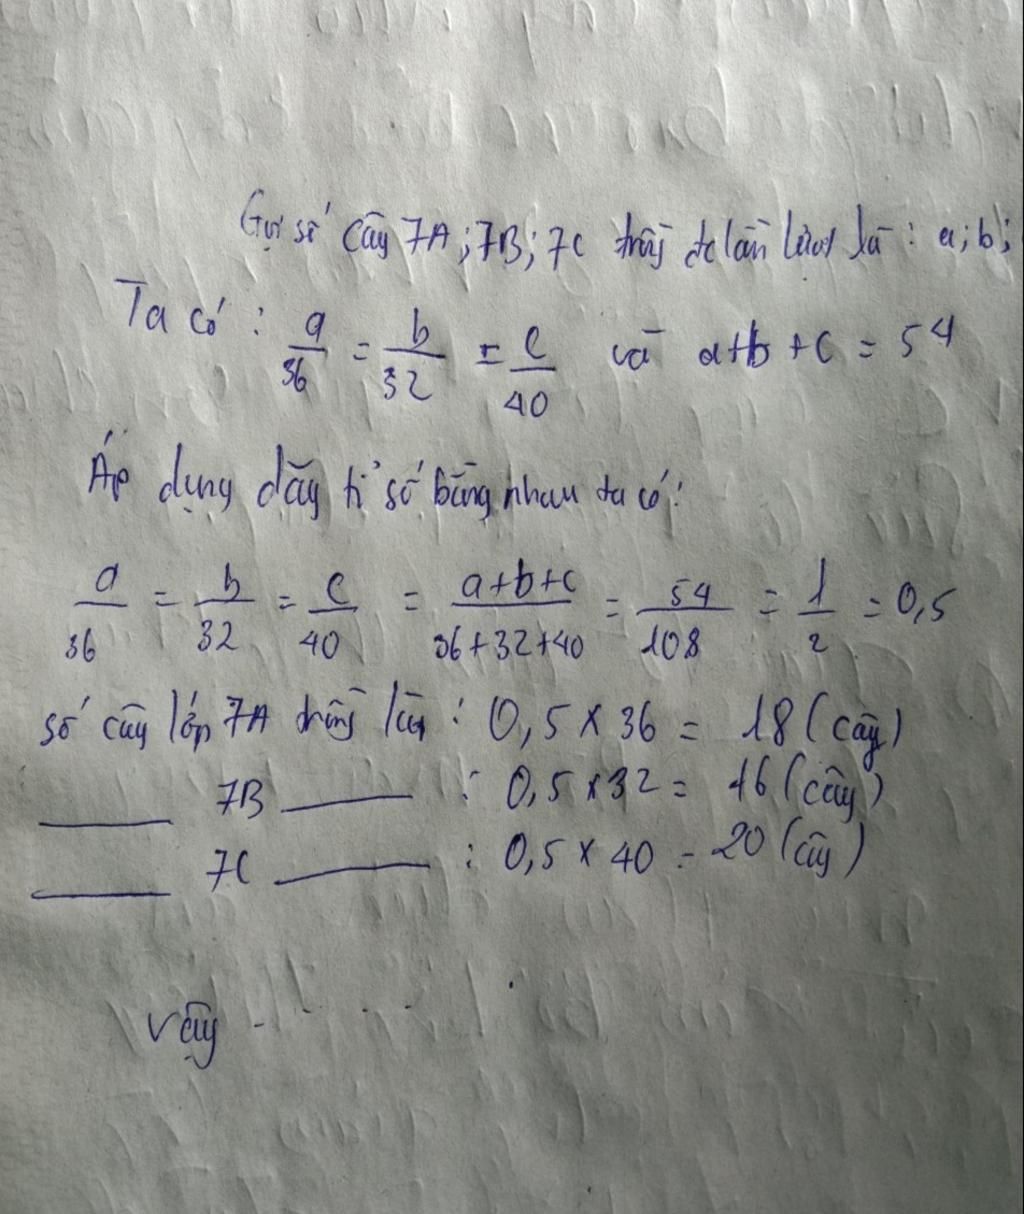 Gọi số cây 7A; 7B; 7C trồng đc lần lượt là: a; b;
Ta có: a/36 = b/32 = c/40 và a+b+c = 54
Áp dụng dãy tỉ số bằng nhau ta có:
a/36 = b/32 = c/40 = a+b+c/36+32+40 = 54/108 = 1/2 = 0,5
số cây lớp 7A trồng là: 0,5 x 36 = 18 (cây)
___ 7B ___ : 0,5 x 32 = 16 (cây)
___ 7C ___ : 0,5 x 40 = 20 (cây)
Vậy - . . . .